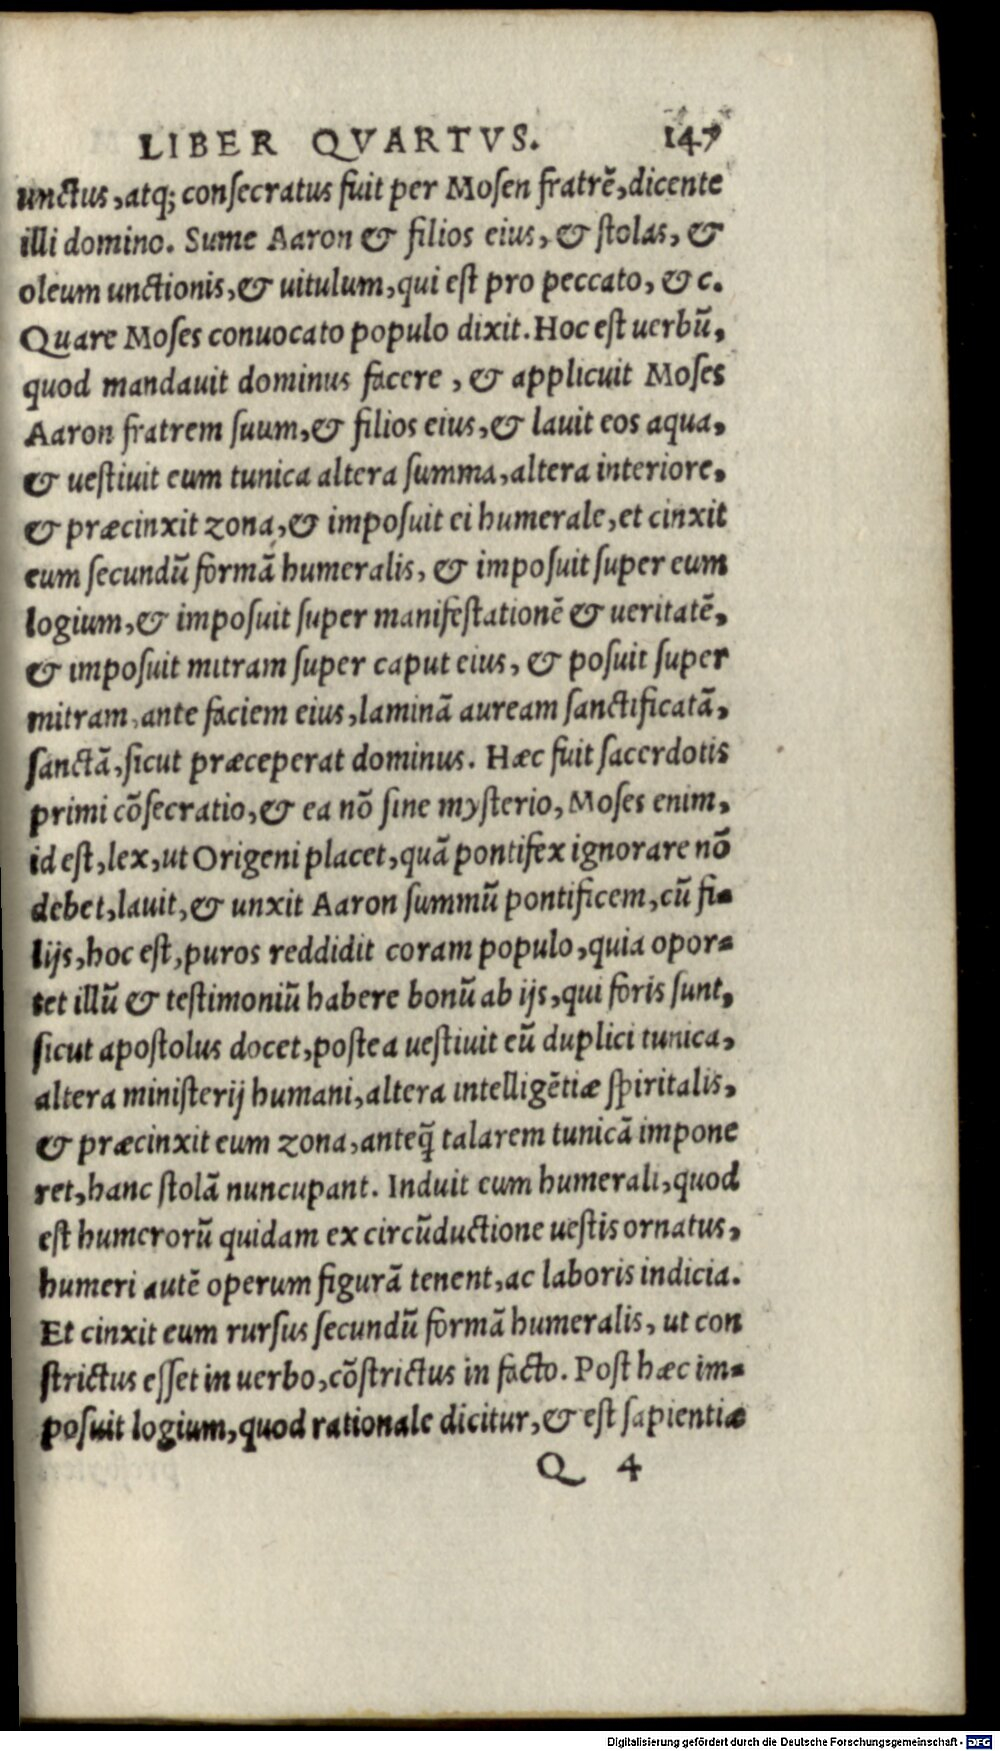 LIBER QVARTVS. 147
unctus, atq; consecratus fuit per Mosen fratrẽ, dicente
illi domino. Sume Aaron & filios eius, & stolas, &
oleum unctionis, & uitulum, qui est pro peccato, & c.
Quare Moses conuocato populo dixit. Hoc est uerbũ,
quod mandauit dominus facere, & applicuit Moses
Aaron fratrem suum, & filios eius, & lauit eos aqua,
& uestiuit eum tunica altera summa, altera interiore,
& præcinxit zona, & imposuit ei humerale, et cinxit
eum secundũ formã humeralis, & imposuit super eum
logium, & imposuit super manifestationẽ & ueritatẽ,
& imposuit mitram super caput eius, & posuit super
mitram, ante faciem eius, laminã auream sanctificatã,
sanctã, sicut præceperat dominus. Hæc fuit sacerdotis
primi cõsecratio, & ea nõ sine mysterio, Moses enim,
id est, lex, ut Origeni placet, quã pontifex ignorare nõ
debet, lauit, & unxit Aaron summũ pontificem, cũ fi-
lijs, hoc est, puros reddidit coram populo, quia opor-
tet illũ & testimoniũ habere bonũ ab ijs, qui foris sunt,
sicut apostolus docet, postea uestiuit eũ duplici tunica,
altera ministerij humani, altera intelligẽtiæ spiritalis,
& præcinxit eum zona, anteq̃ talarem tunicã impone
ret, hanc stolã nuncupant. Induit eum humerali, quod
est humerorũ quidam ex circũductione uestis ornatus,
humeri autẽ operum figurã tenent, ac laboris indicia.
Et cinxit eum rursus secundũ formã humeralis, ut con
strictus esset in uerbo, cõstrictus in facto. Post hæc im-
posuit logium, quod rationale dicitur, & est sapientiæ
Q 4
Digitalisierung gefördert durch die Deutsche Forschungsgemeinschaft - DFG